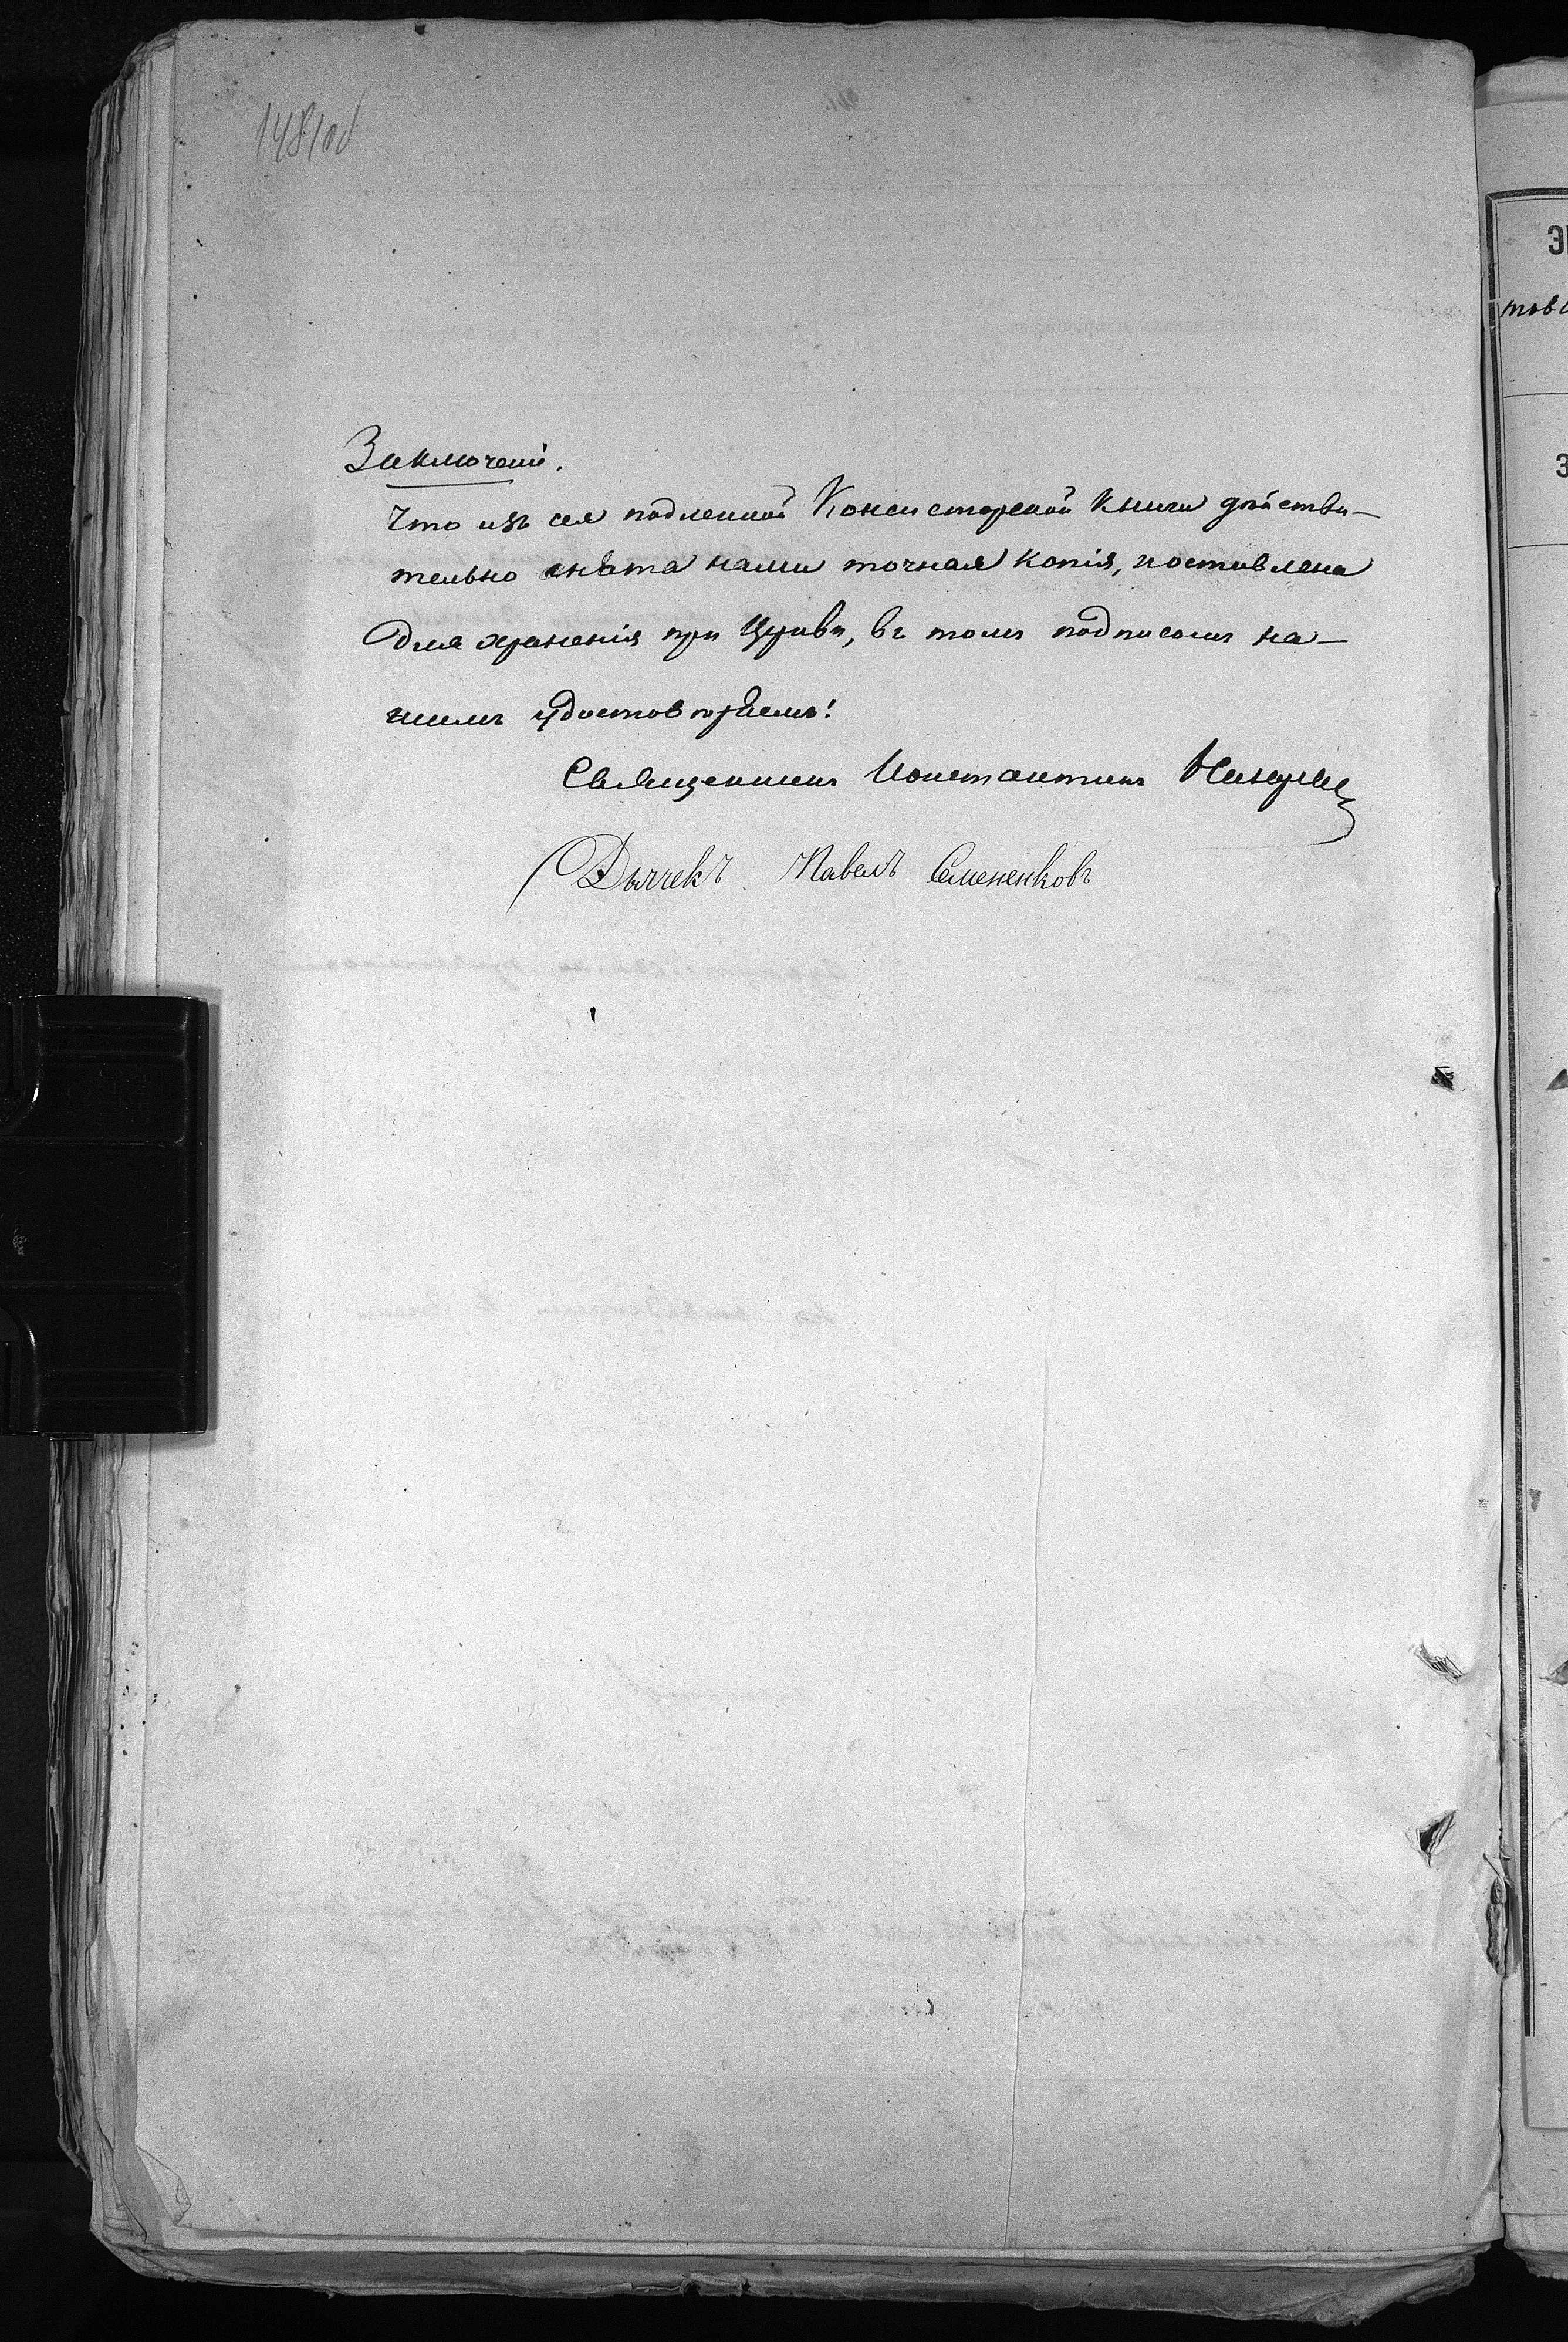 148 об
Заключенiе.
Что изъ сея подленной Консисторской Книги дѣйстви-
тельно снята нами точная Копія, и оставлена
для храненія при Церкви, въ томъ подписомъ на-
шимъ удостовѣряемъ!
Священникъ Константинъ
Дьячекъ Павелъ Семененковъ